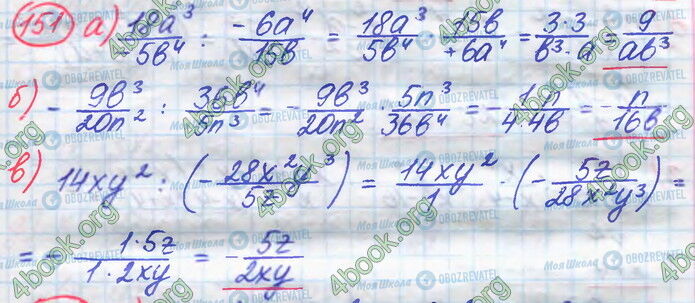 151 а) 18a³/5b⁴ : -6a⁴/15b = 18a³/5b⁴ · 15b/+6a⁴ = 3·3/b³·a = 9/ab³
б) - 9b³/20n² : 36b⁴/5n³ = - 9b³/20n² · 5n³/36b⁴ = - 1·n/4·4b = - n/16b
в) 14xy² : (- 28x²y³/5z) = 14xy²/1 · (- 5z/28x²y³) =
= - 1·5z/1·2xy = - 5z/2xy